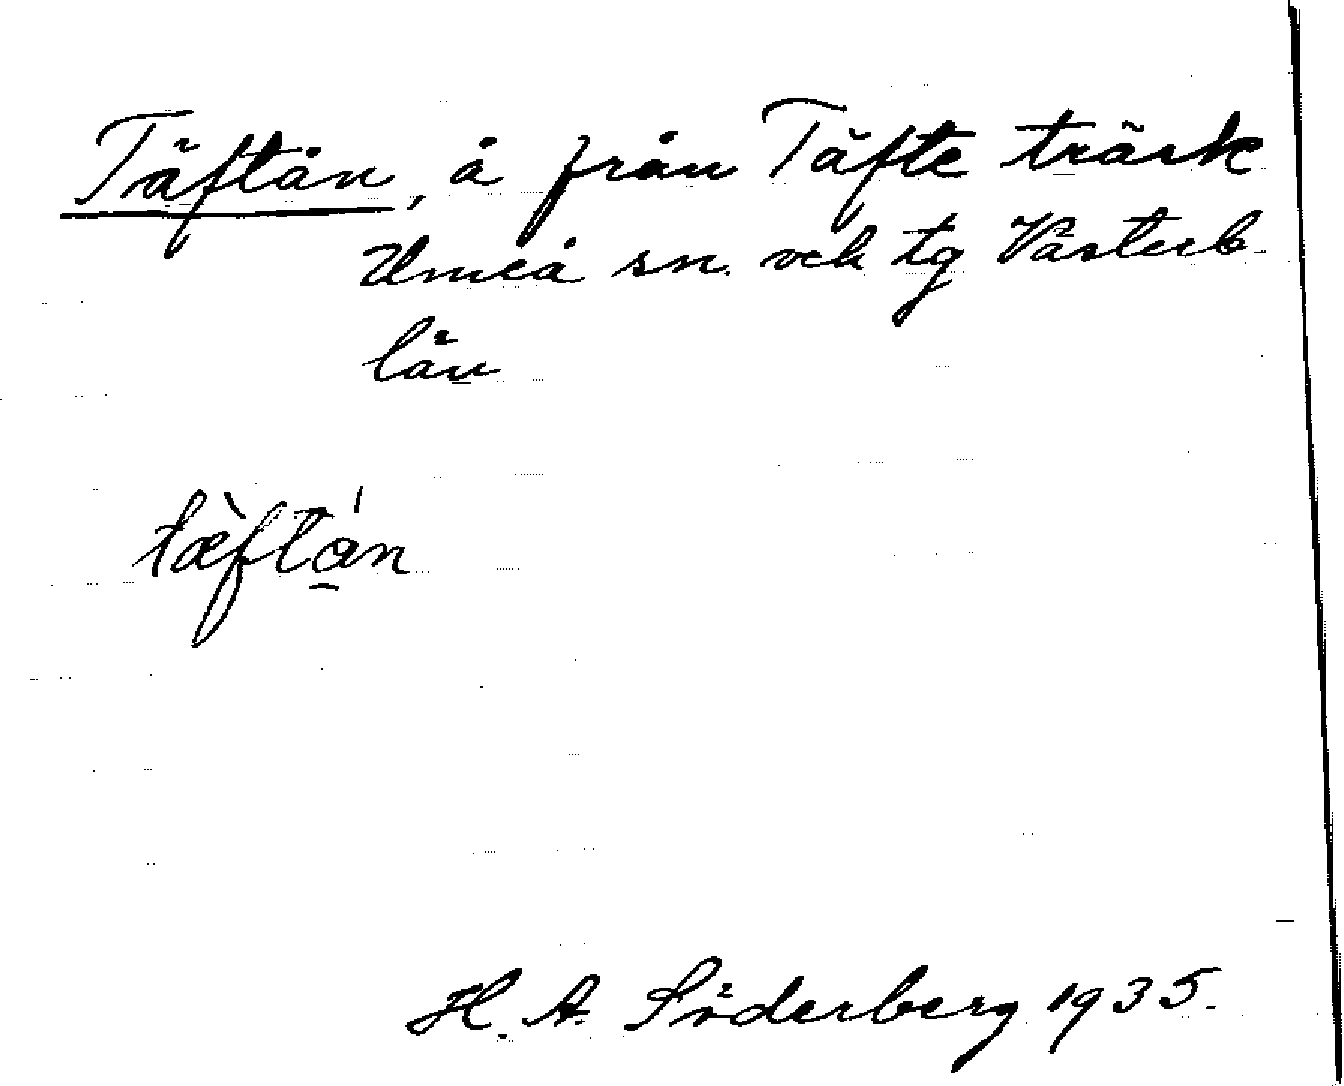 Täftån, å från Täfte träsk
Umeå sn. och tg Västerb
län
tæ̀ftǻ̱n
H. A. Söderberg 1935.